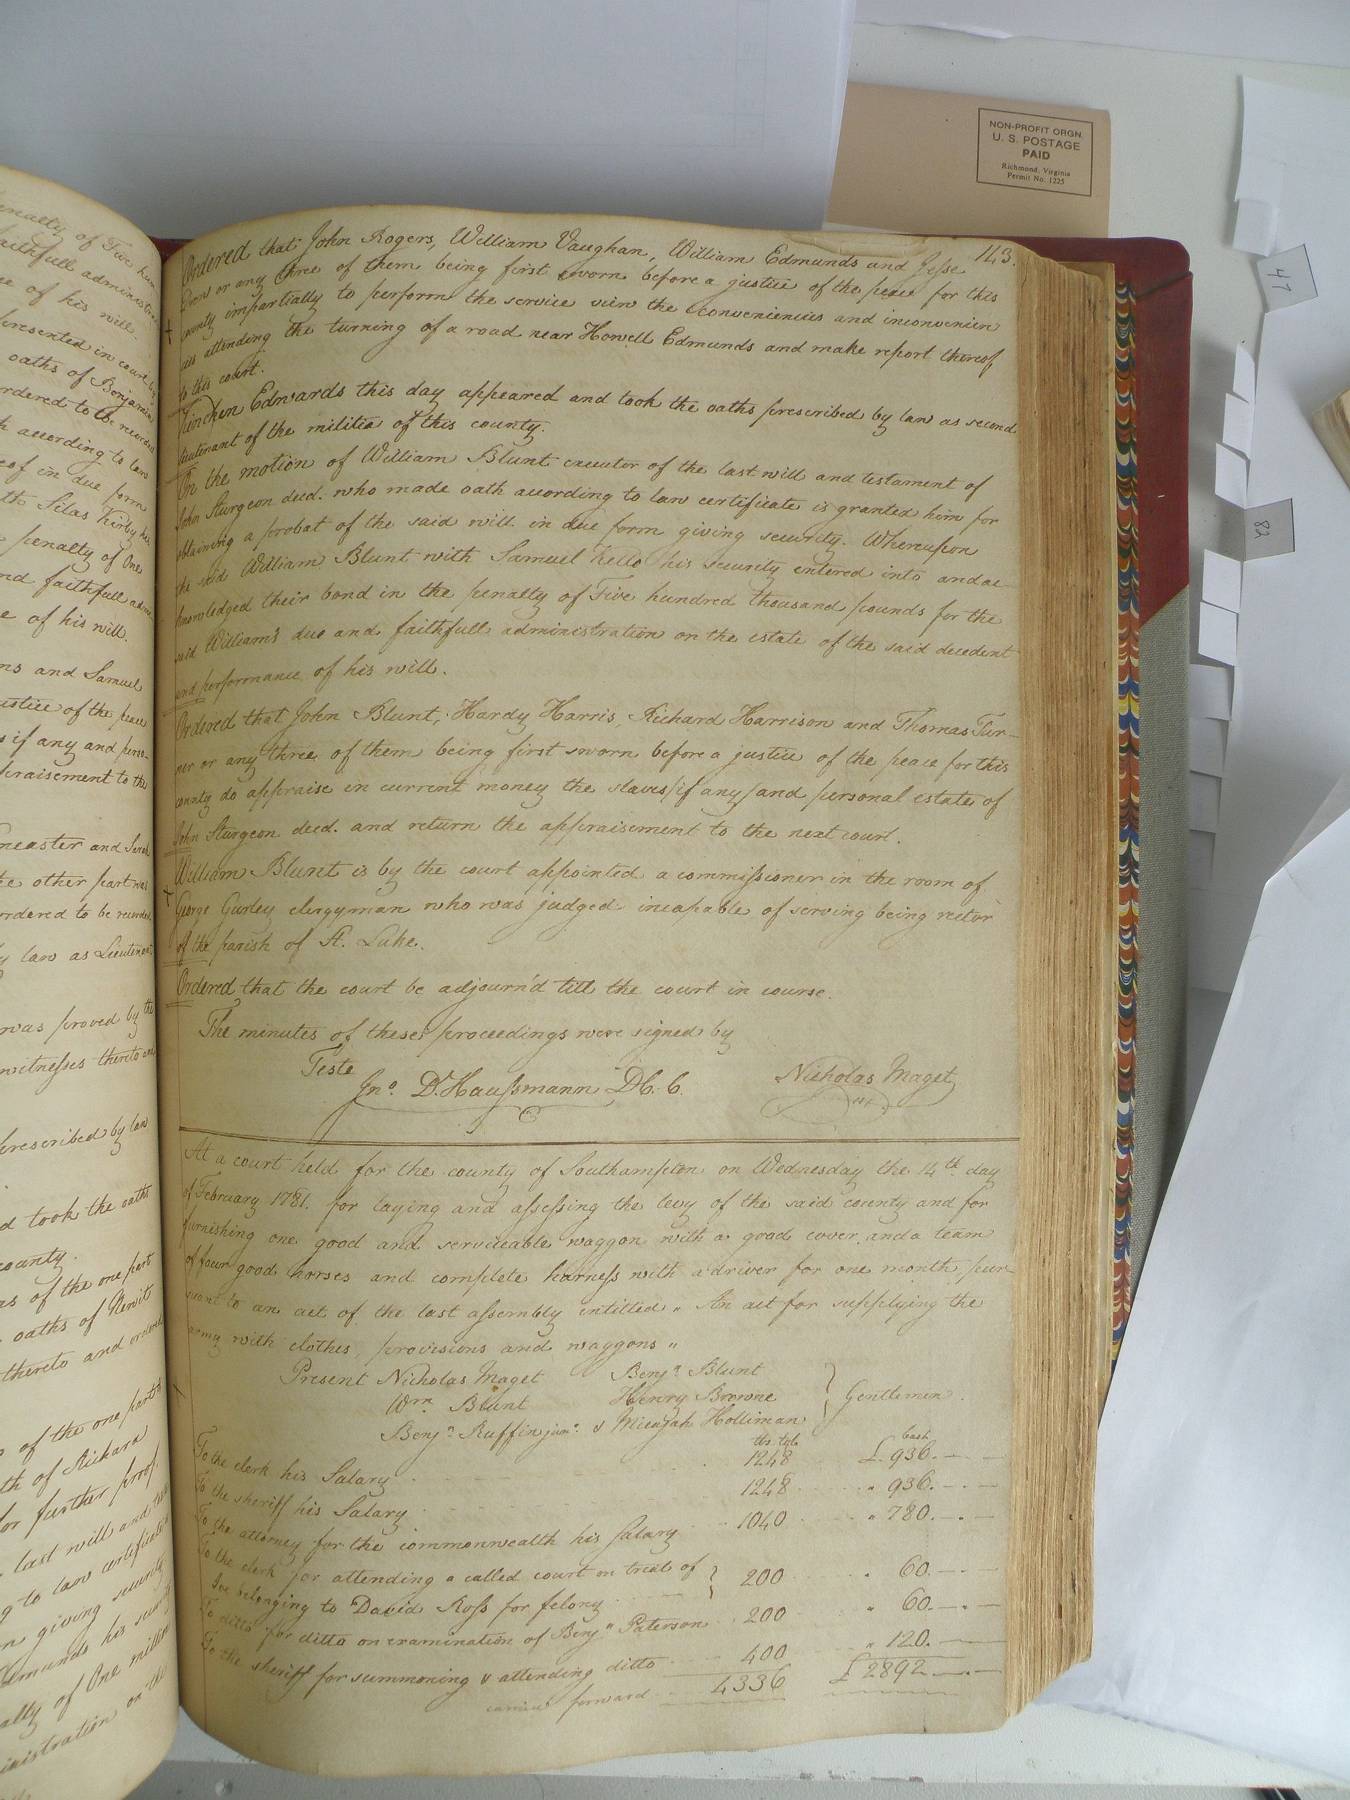 NON-PROFIT ORGN.
U. S. POSTAGE
PAID
Richmond, Virginia
Permit No. 1225
47
82
143.
enalty of Five hun
aithfull administra
ce of his will.
presented in court by
oaths of Benjamin
rdered to be recorded
according to law
eof in due form
th Silas Kirby his
penalty of One
nd faithfull adm
e of his will.
ns and Samuel
ustice of the peace
s if any and perso-
praisement to the
ncaster and Sarah
the other part was
ordered to be recorded.
y law as Lieutenant
was proved by the
witnesses thereto and
prescribed by law
d took the oaths
county.
as of the one part
oaths of
thereto and ordered
s of the one part
th of Richard
for further proof.
last will and
g to law certificate
n giving security
Edmunds his security
alty of One million
inistration on the
Ordered that John Rogers, William Vaughan, William Edmunds and Jesse
Evans or any three of them being first sworn before a justice of the peace for this
county impartially to perform the service view the conveniencies and inconvenien
cies attending the turning of a road near Howell Edmunds and make report thereof
to this court.
Edwards this day appeared and took the oaths prescribed by law as second
lieutenant of the militia of this county.
On the motion of William Blunt executor of the last will and testament of
John Sturgeon deed. who made oath according to law certificate is granted him for
obtaining a probat of the said will in due form giving security. Whereupon
the said William Blunt with Samuel Kello his security entered into and ac
knowledged their bond in the penalty of Five hundred thousand pounds for the
said William's due and faithfull administration on the estate of the said decedent
and performance of his will.
Ordered that John Blunt, Hardy Harris, Richard Harrison and Thomas Tur-
ner or any three of them being first sworn before a justice of the peace for this
county do appraise in current money the slaves (if any) and personal estate of
John Sturgeon deed. and return the appraisement to the next court.
William Blunt is by the court appointed a commissioner in the room of
George Gurley clergyman who was judged incapable of serving being rector
of the parish of St. Luke.
Ordered that the court be adjourn'd till the court in course.
The minutes of these proceedings were signed by
Teste
Jno. D. Haussmann D C. C. Nicholas Maget
At a court held for the county of Southampton on Wednesday the 14th. day
of February 1781. for laying and assessing the levy of the said county and for
furnishing one good and serviceable waggon with a good cover, and a team
of four good horses and complete harness with a driver for one month pur
suant to an act of the last assembly intitled " An act for supplying the
army with clothes, provisions and waggons "
Present Nicholas Maget Benja. Blunt
Wm. Blunt Henry Browne } Gentlemen.
Benja. Ruffin junr. & Micajah Holliman
lbs. tob. Cash
To the clerk his Salary 1248 £. 936. - -
To the sheriff his Salary 1248 " 936. - -
To the attorney for the commonwealth his Salary 1040 " 780. - -
To the clerk for attending a called court on trial of
Joe belonging to David Ross for felony } 200 " 60. - -
To ditto for ditto on examination of Benja. Paterson 200 " 60. - -
To the sheriff for summoning & attending ditto 400 " 120. -
carried forward 4336 £ 2892 - -